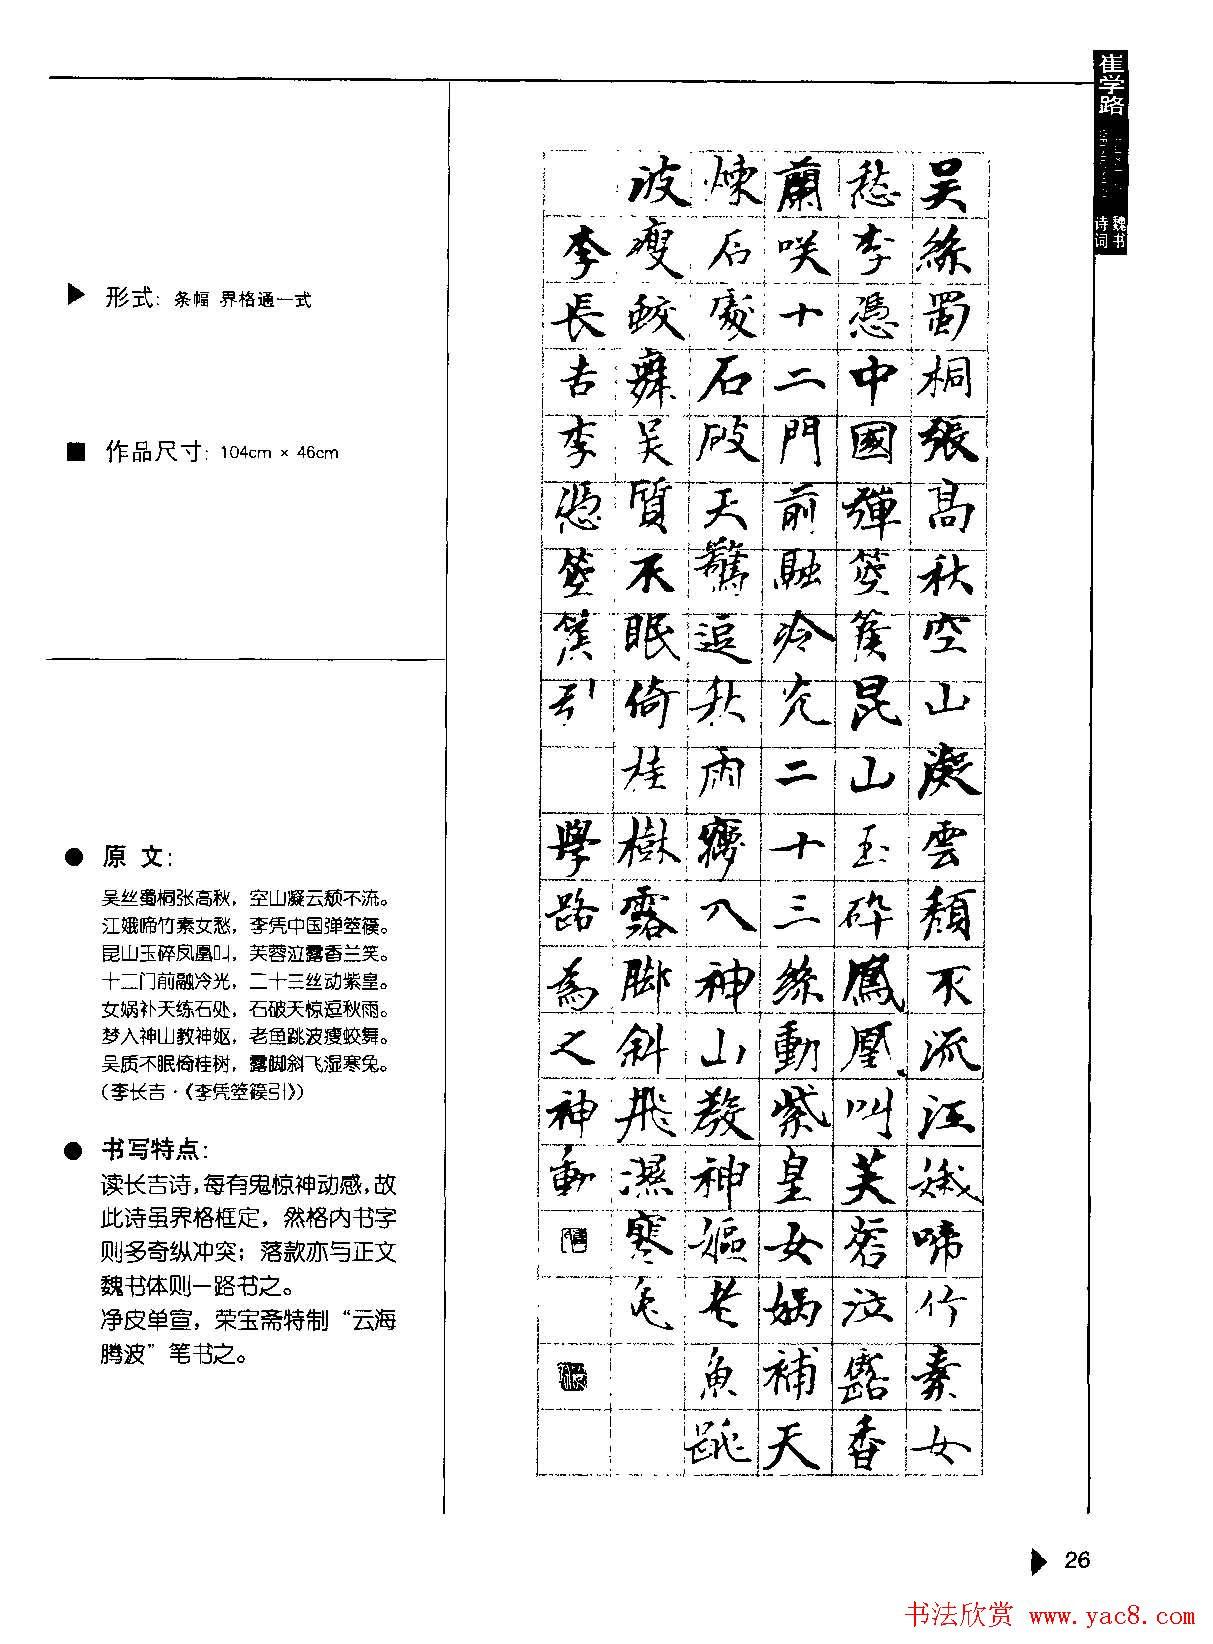 崔学路
魏书
诗词
形式：条幅 界格通一式
作品尺寸：104cm × 46cm
原文：
吴丝蜀桐张高秋，空山凝云颓不流。
江娥啼竹素女愁，李凭中国弹箜篌。
昆山玉碎凤凰叫，芙蓉泣露香兰笑。
十二门前融冷光，二十三丝动紫皇。
女娲补天练石处，石破天惊逗秋雨。
梦入神山教神妪，老鱼跳波瘦蛟舞。
吴质不眠倚桂树，露脚斜飞湿寒兔。
（李长吉·《李凭箜篌引》）
书写特点：
读长吉诗，每有鬼惊神动感，故
此诗虽界格框定，然格内书字
则多奇纵冲突；落款亦与正文
魏书体则一路书之。
净皮单宣，荣宝斋特制“云海
腾波”笔书之。
吴絲蜀桐張高秋空山凝雲頹不流江娥啼竹素女
愁李憑中國彈箜篌昆山玉碎鳳凰叫芙蓉泣露香
蘭咲十二門前融冷光二十三絲動紫皇女媧補天
煉石處石破天驚逗秋雨夢入神山教神嫗老魚跳
波瘦蛟舞吴質不眠倚桂樹露脚斜飛濕寒兔
李長吉李憑箜篌引 學路為之神動
26
书法欣赏 www.yac8.com